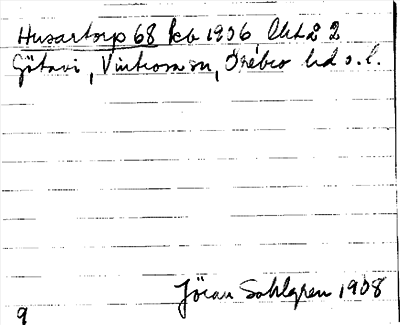 Husartorp 68 kb 1906 Akt 2 2
Götavi, Vintrosa sn, Örebro hd o. l.
Jöran Sahlgren 1908
9